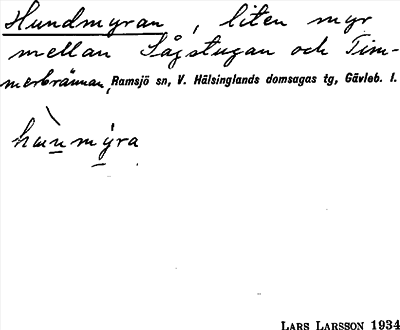 Hundmyran, liten myr
mellan Sågstugan och Tim-
merbrännan, Ramsjö sn, V. Hälsinglands domsagas tg, Gävleb. l.
hunmýra
LARS LARSSON 1934